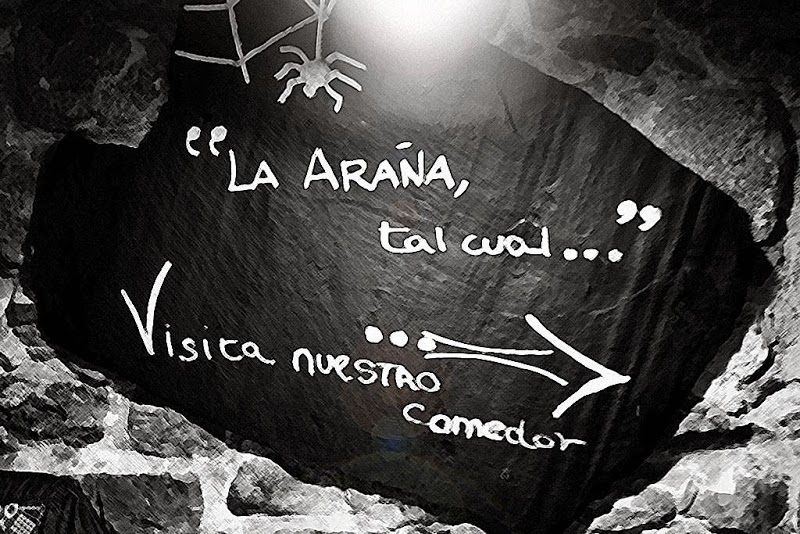 “LA ARAÑA,
tal cual...”
Visita nuestro
comedor